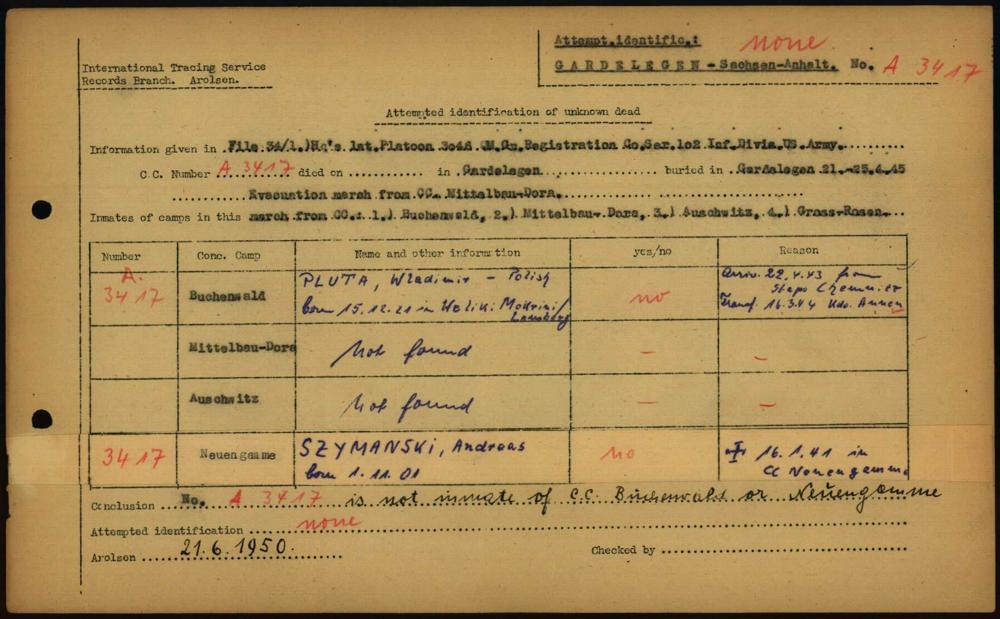 Attempt.identific.: none
International Tracing Service
Records Branch. Arolsen.
GARDELEGEN - Sachsen-Anhalt. No. A 3417
Attempted identification of unknown dead
Information given in File 34/1.)Hq's 1at.Platoon 3046 .M.Gu.Registration Co.Ser.102 Inf.Divis.US Army.
C.C. Number A 3417 died on ............ in Gardelegen ............ buried in Gardelegen 21.-25.4.45
Evacuation march from CC. Mittelbau-Dora.
Inmates of camps in this march from CC.: 1.) Buchenwald, 2.) Mittelbau-Dora, 3.) Auschwitz, 4.) Gross-Rosen
Number Conc. Camp Name and other information yes/no Reason
A. 3417 Buchenwald PLUTA, Wladimir - Polish no
born 15.12.21 in
arriv. 22.4.43 from
Stapo Chemnitz
Transf. 16.3.44 Kdo. Annen
Mittelbau-Dora Not found - -
Auschwitz Not found - -
3417 Neuengamme SZYMANSKI, Andreas no
born 1.11.01
16.1.41 in
CC Neuengamme
Conclusion No. A 3417 is not inmate of C.C. Buchenwald or Neuengamme
Attempted identification none
Arolsen 21.6.1950. Checked by